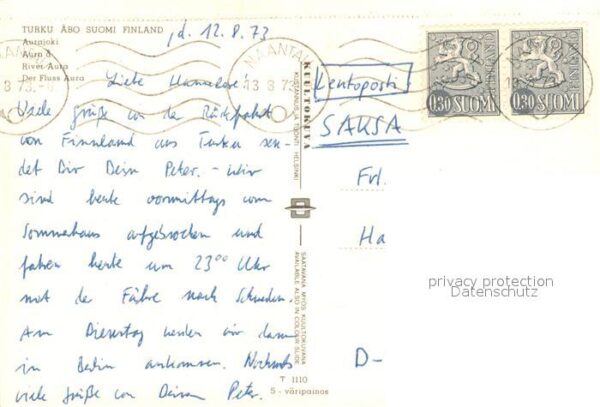 TURKU ÅBO SUOMI FINLAND
Aurajoki
Aura å
River Aura
Der Fluss Aura
, d. 12.8.73
NAANTALI
13 8 73
Liebe Hannelore!
Viele Grüße von der Rückfahrt
von Finnland aus Turku sen-
det Dir Dein Peter. - Wir
sind heute vormittags vom
Sommerhaus aufgebrochen und
fahren heute um 23⁰⁰ Uhr
mit der Fähre nach Schweden.
Am Dienstag werden wir dann
in Berlin ankommen. Nochmals
viele Grüße von Deinem Peter.
KUULTOKUVA
KUSTANNUS JA TUONTI HELSINKI
SAATAVANA MYÖS KUULTOKUVANA
AVAILABLE ALSO IN COLOUR SLIDE
T 1110
5 - väripainos
Lentoposti
SAKSA
Frl.
Ha
D-
0,30 SUOMI
0,30 SUOMI
privacy protection
Datenschutz